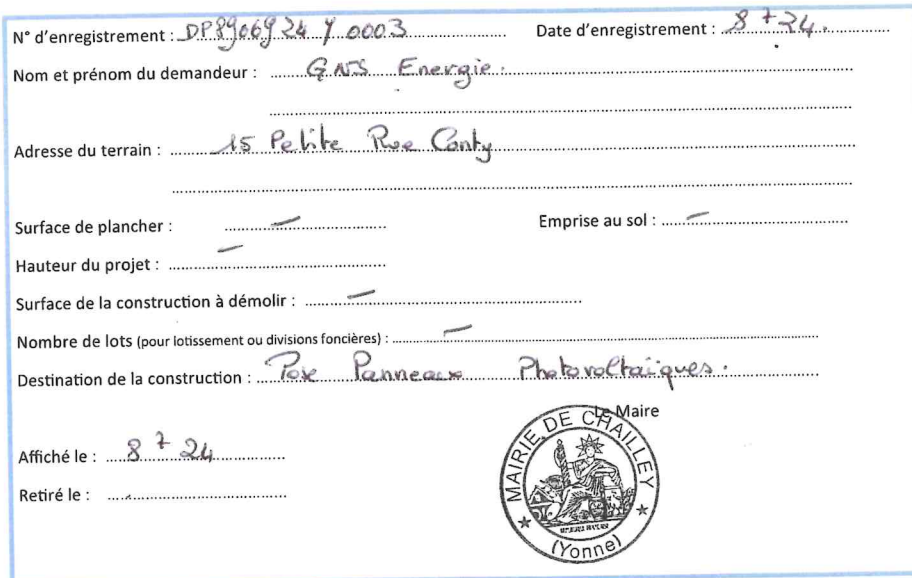 N° d'enregistrement : DP89069 24 Y 0003 Date d'enregistrement : 8 7 24.
Nom et prénom du demandeur : GNS Energie.
Adresse du terrain : 15 Petite Rue Conty
Surface de plancher : — Emprise au sol : —
Hauteur du projet : —
Surface de la construction à démolir : —
Nombre de lots (pour lotissement ou divisions foncières) : —
Destination de la construction : Pose Panneaux Photovoltaïques.
Le Maire
Affiché le : 8 7 24
Retiré le :
MAIRIE DE CHAILLEY
(Yonne)